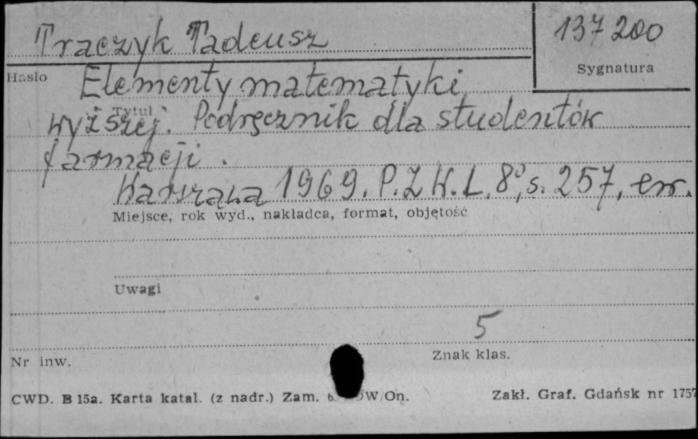 Traczyk Tadeusz
137 200
Hasło
Sygnatura
Elementy matematyki
Tytuł
wyższej. Podręcznik dla studentów
farmacji.
Warszawa 1969. P.Z.W.L. 8°, s. 257, err.
Miejsce, rok wyd., nakładca, format, objętość
Uwagi
5
Nr inw.
Znak klas.
CWD. B 15a. Karta katal. (z nadr.) Zam. OW/On.
Zakł. Graf. Gdańsk nr 1757